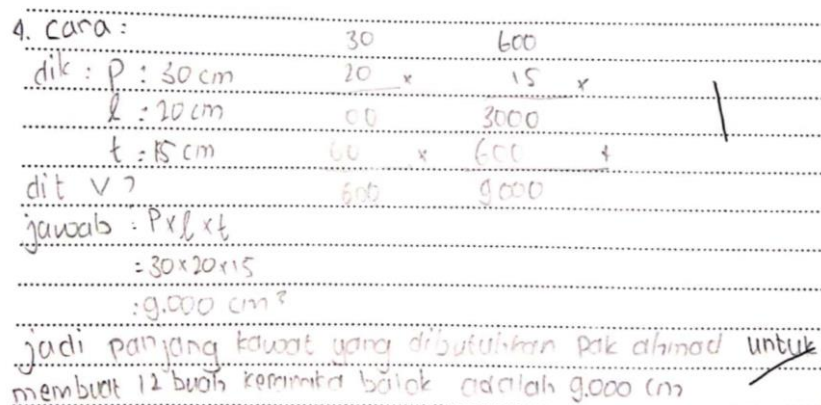 4. Cara :
dik : P : 30 cm
l : 20 cm
t : 15 cm
dit V ?
jawab : P x l x t
: 30 x 20 x 15
: 9.000 cm³
30
20 x
00
60 x
600
600
15 x
3000
600 +
9000
jadi panjang kawat yang dibutuhkan pak ahmad untuk
membuat 12 buah kerangka balok adalah 9.000 cm